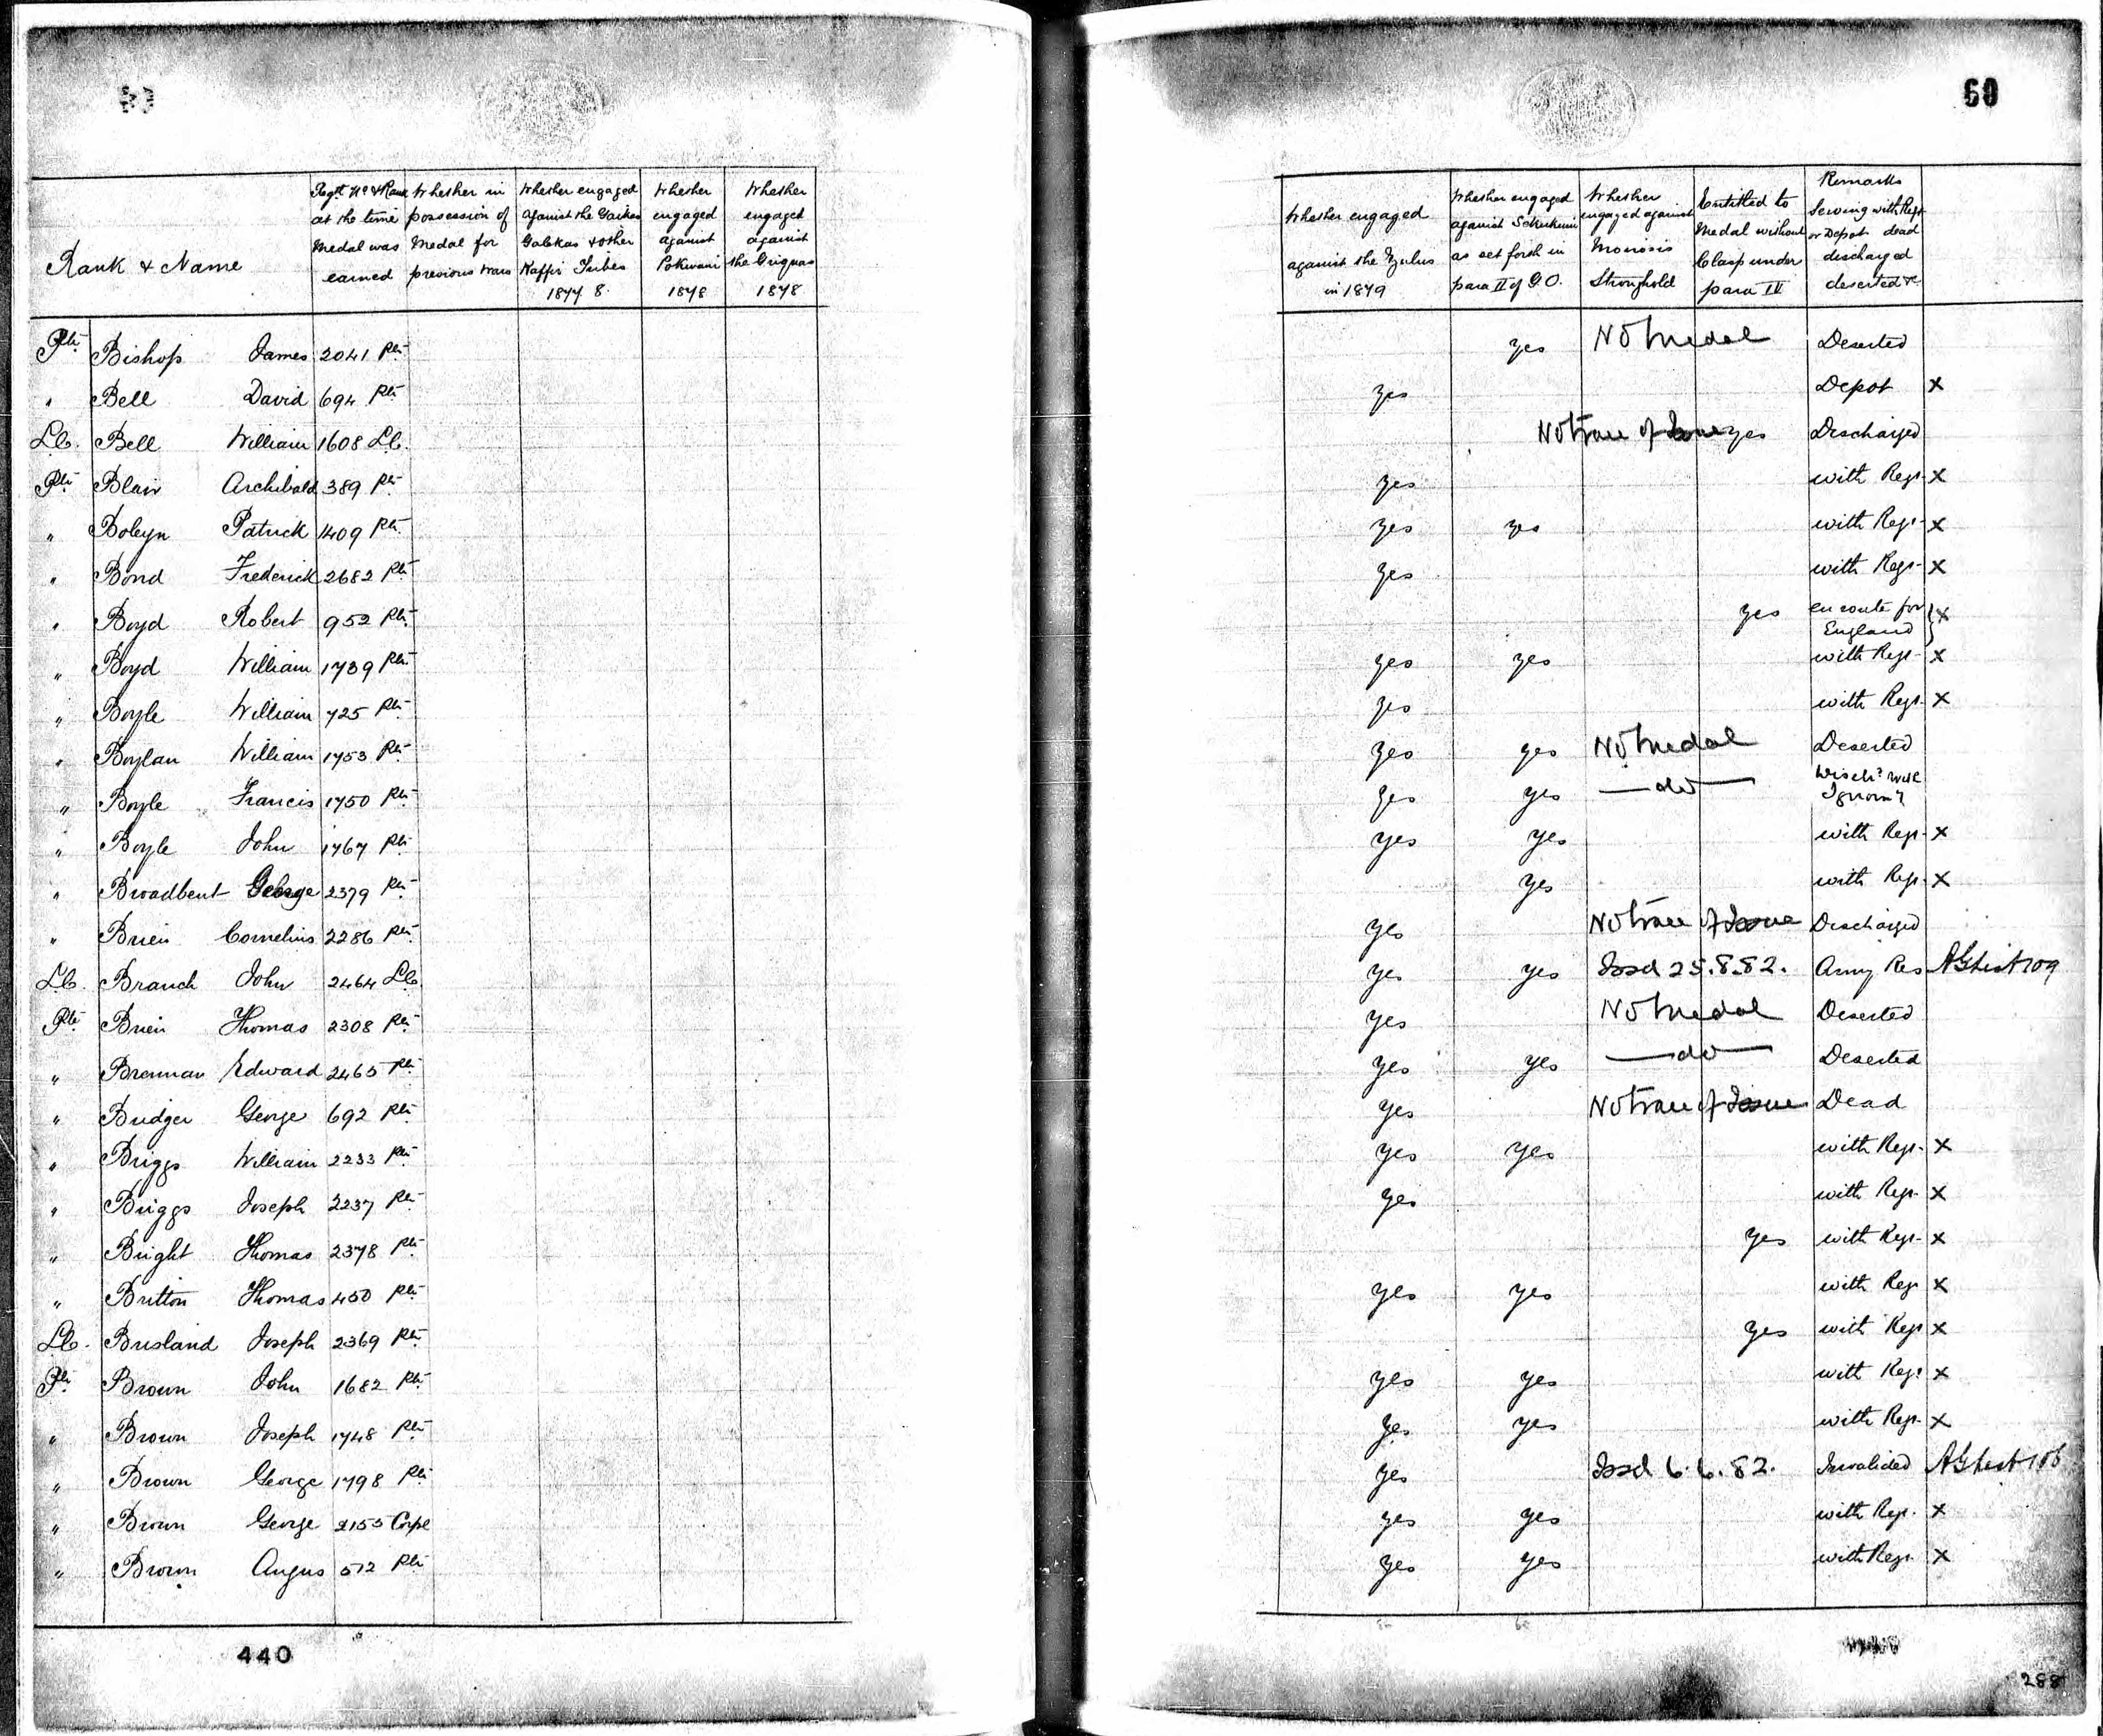 60
Rank & Name
Regtl. No & Rank at the time Medal was earned
Whether in possession of Medal for previous wars
Whether engaged against the Gaikas Galekas & other Kaffir Tribes 1877.8.
Whether engaged against Pokwani 1878
Whether engaged against the Griquas 1878
Whether engaged against the Zulus in 1879
Whether engaged against Sekukuni as set forth in para II of G.O.
Whether engaged against Morosis Stronghold
Entitled to Medal without Clasp under para IV
Remarks Serving with Regt or Depot dead discharged deserted &c.
Pte Bishop James 2041 Pte yes No medal Deserted
" Bell David 694 Pte yes Depot X
LC. Bell William 1608 LC. No trace of Issue yes Discharged
Pte Blair Archibald 389 Pte yes with Regt X
" Boleyn Patrick 1409 Pte yes yes with Regt X
" Bond Frederick 2682 Pte yes with Regt X
" Boyd Robert 952 Pte yes en route for England } X
" Boyd William 1739 Pte yes yes with Regt X
" Boyle William 725 Pte yes with Regt X
" Boylan William 1753 Pte yes yes No medal Deserted
" Boyle Francis 1750 Pte yes yes — do — Disch? with Ignom?
" Boyle John 1767 Pte yes yes with Regt X
" Broadbent George 2379 Pte yes with Regt X
" Brien Cornelius 2286 Pte yes No trace of Issue Discharged
LC. Branch John 2464 LC yes yes Issd 25.8.82. Army Res AG List 109
Pte Brien Thomas 2308 Pte yes No medal Deserted
" Brennan Edward 2465 Pte yes yes — do — Deserted
" Bridger George 692 Pte yes No trace of Issue Dead
" Briggs William 2233 Pte yes yes with Regt X
" Briggs Joseph 2237 Pte yes with Regt X
" Bright Thomas 2378 Pte yes with Regt X
" Britton Thomas 450 Pte yes yes with Regt X
LC. Brisland Joseph 2369 Pte yes with Regt X
Pte Brown John 1682 Pte yes yes with Regt X
" Brown Joseph 1748 Pte yes yes with Regt X
" Brown George 1798 Pte yes Issd 6.6.82. Invalided AG List 106
" Brown George 2155 Corpl yes yes with Regt X
" Brown Angus 572 Pte yes yes with Regt X
440
288